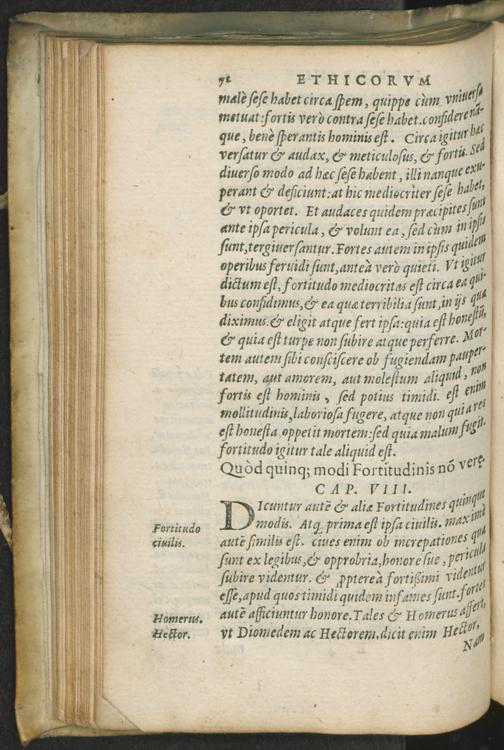 92 ETHICORVM
malè sese habet circa spem, quippe cùm vniuersa
metuat: fortis verò contra sese habet. considere nã-
que, benè sperantis hominis est. Circa igitur hæc
versatur & audax, & meticulosus, & fortis. Sed
diuerso modo ad hæc sese habent, illi nanque exu-
perant & deficiunt: at hic mediocriter sese habet,
& vt oportet. Et audaces quidem præcipites sunt
ante ipsa pericula, & volunt ea, sed cùm in ipsis
sunt, tergiuersantur. Fortes autem in ipsis quidem
operibus feruidi sunt, anteà verò quieti. Vt igitur
dictum est, fortitudo mediocritas est circa ea qui-
bus confidimus, & ea quæ terribilia sunt, in ijs quæ
diximus. & eligit atque fert ipsa: quia est honestũ,
& quia est turpe non subire atque perferre. Mor-
tem autem sibi consciscere ob fugiendam pauper-
tatem, aut amorem, aut molestum aliquid, non
fortis est hominis, sed potius timidi. est enim
mollitudinis, laboriosa fugere, atque non quia res
est honesta oppetit mortem: sed quia malum fugit.
fortitudo igitur tale aliquid est.
Quòd quinq; modi Fortitudinis nõ verę.
CAP. VIII.
DIcuntur autẽ & aliæ Fortitudines quinque
modis. Atq; prima est ipsa ciuilis. maximè
Fortitudo
ciuilis.
autẽ similis est. ciues enim ob increpationes quæ
sunt ex legibus, & opprobria, honorésue, pericula
subire videntur. & ꝓptereà fortißimi videntur
esse, apud quos timidi quidem infames sunt. fortes
Homerus.
Hector.
autẽ afficiuntur honore. Tales & Homerus affert,
vt Diomedem ac Hectorem. dicit enim Hector,
Nam